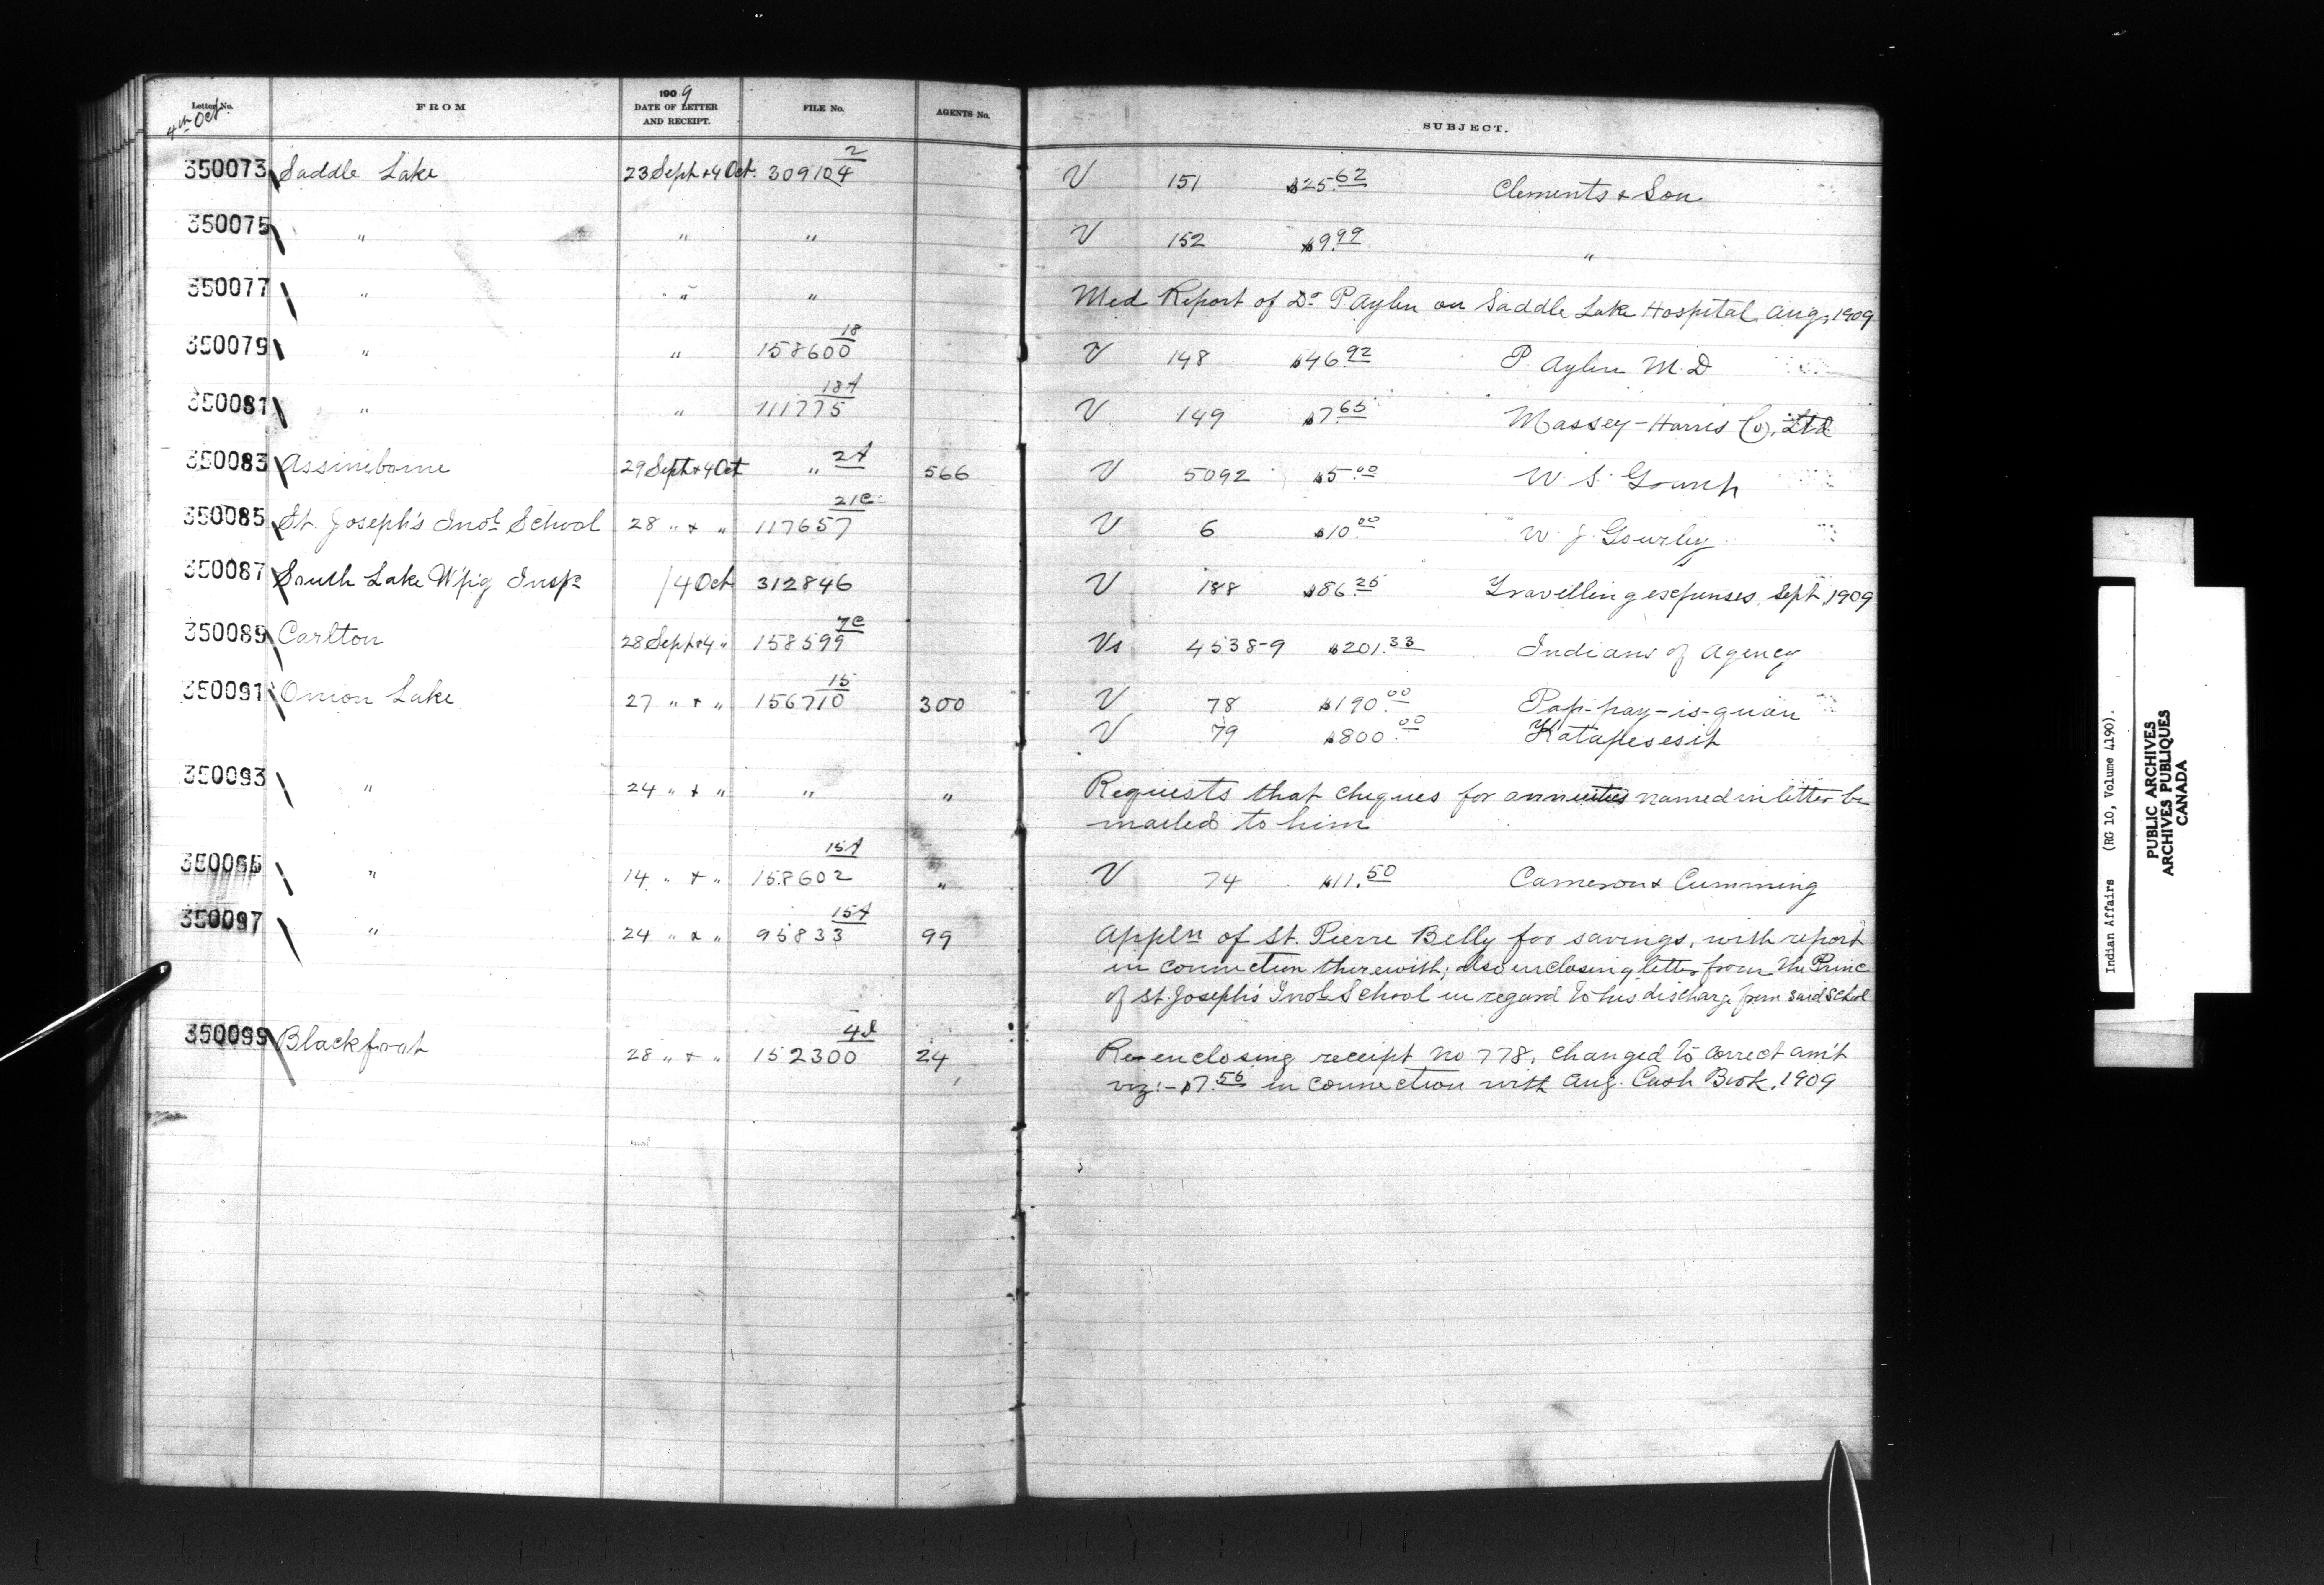 Letter No. FROM 1909 DATE OF LETTER AND RECEIPT. FILE No. AGENTS No. SUBJECT.
4th Oct.
350073 Saddle Lake 23 Sept + 4 Oct. 309104 2 V 151 $25.62 Clements & Son
350075 " " " V 152 $9.99 "
350077 " " " Med Report of Dr P. Aylen on Saddle Lake Hospital, Aug, 1909
350079 " " 158600 18 V 148 $46.92 P. Aylen M.D
350081 " " 111775 18A V 149 $7.65 Massey-Harris Co. Ltd
350083 Assiniboine 29 Sept + 4 Oct " 2A 566 V 5092 $5.00 W. S.
350085 St. Joseph's Indl School 28 " + " 117657 21C V 6 $10.00 W J Gourley
350087 South Lake W'pig Inspr / 4 Oct 312846 V 188 $86.25 Travelling expenses. Sept, 1909
350089 Carlton 28 Sept + 4 " 158599 7C Vs 4538-9 $201.33 Indians of Agency
350091 Onion Lake 27 " + " 156710 15 300 V 78 $190.00 Pap-pay-is-quan
V 79 $800.00 Katapesesit
350093 " 24 " + " " " Requests that cheques for annuities named in letter be
mailed to him
350095 " 14 " + " 158602 15A " V 74 $11.50 Cameron & Cumming
350097 " 24 " & " 95833 15A 99 Appln of St. Pierre Belly for savings, with report
in connection therewith; also enclosing letter from the Princ
of St. Joseph's Indl School in regard to his discharge from said School
350099 Blackfoot 28 " + " 152300 24 Re-enclosing receipt no 778, changed to correct am't
viz:- $7.56 in connection with Aug. Cash Book, 1909
Indian Affairs (RG 10, Volume 4190).
PUBLIC ARCHIVES
ARCHIVES PUBLIQUES
CANADA